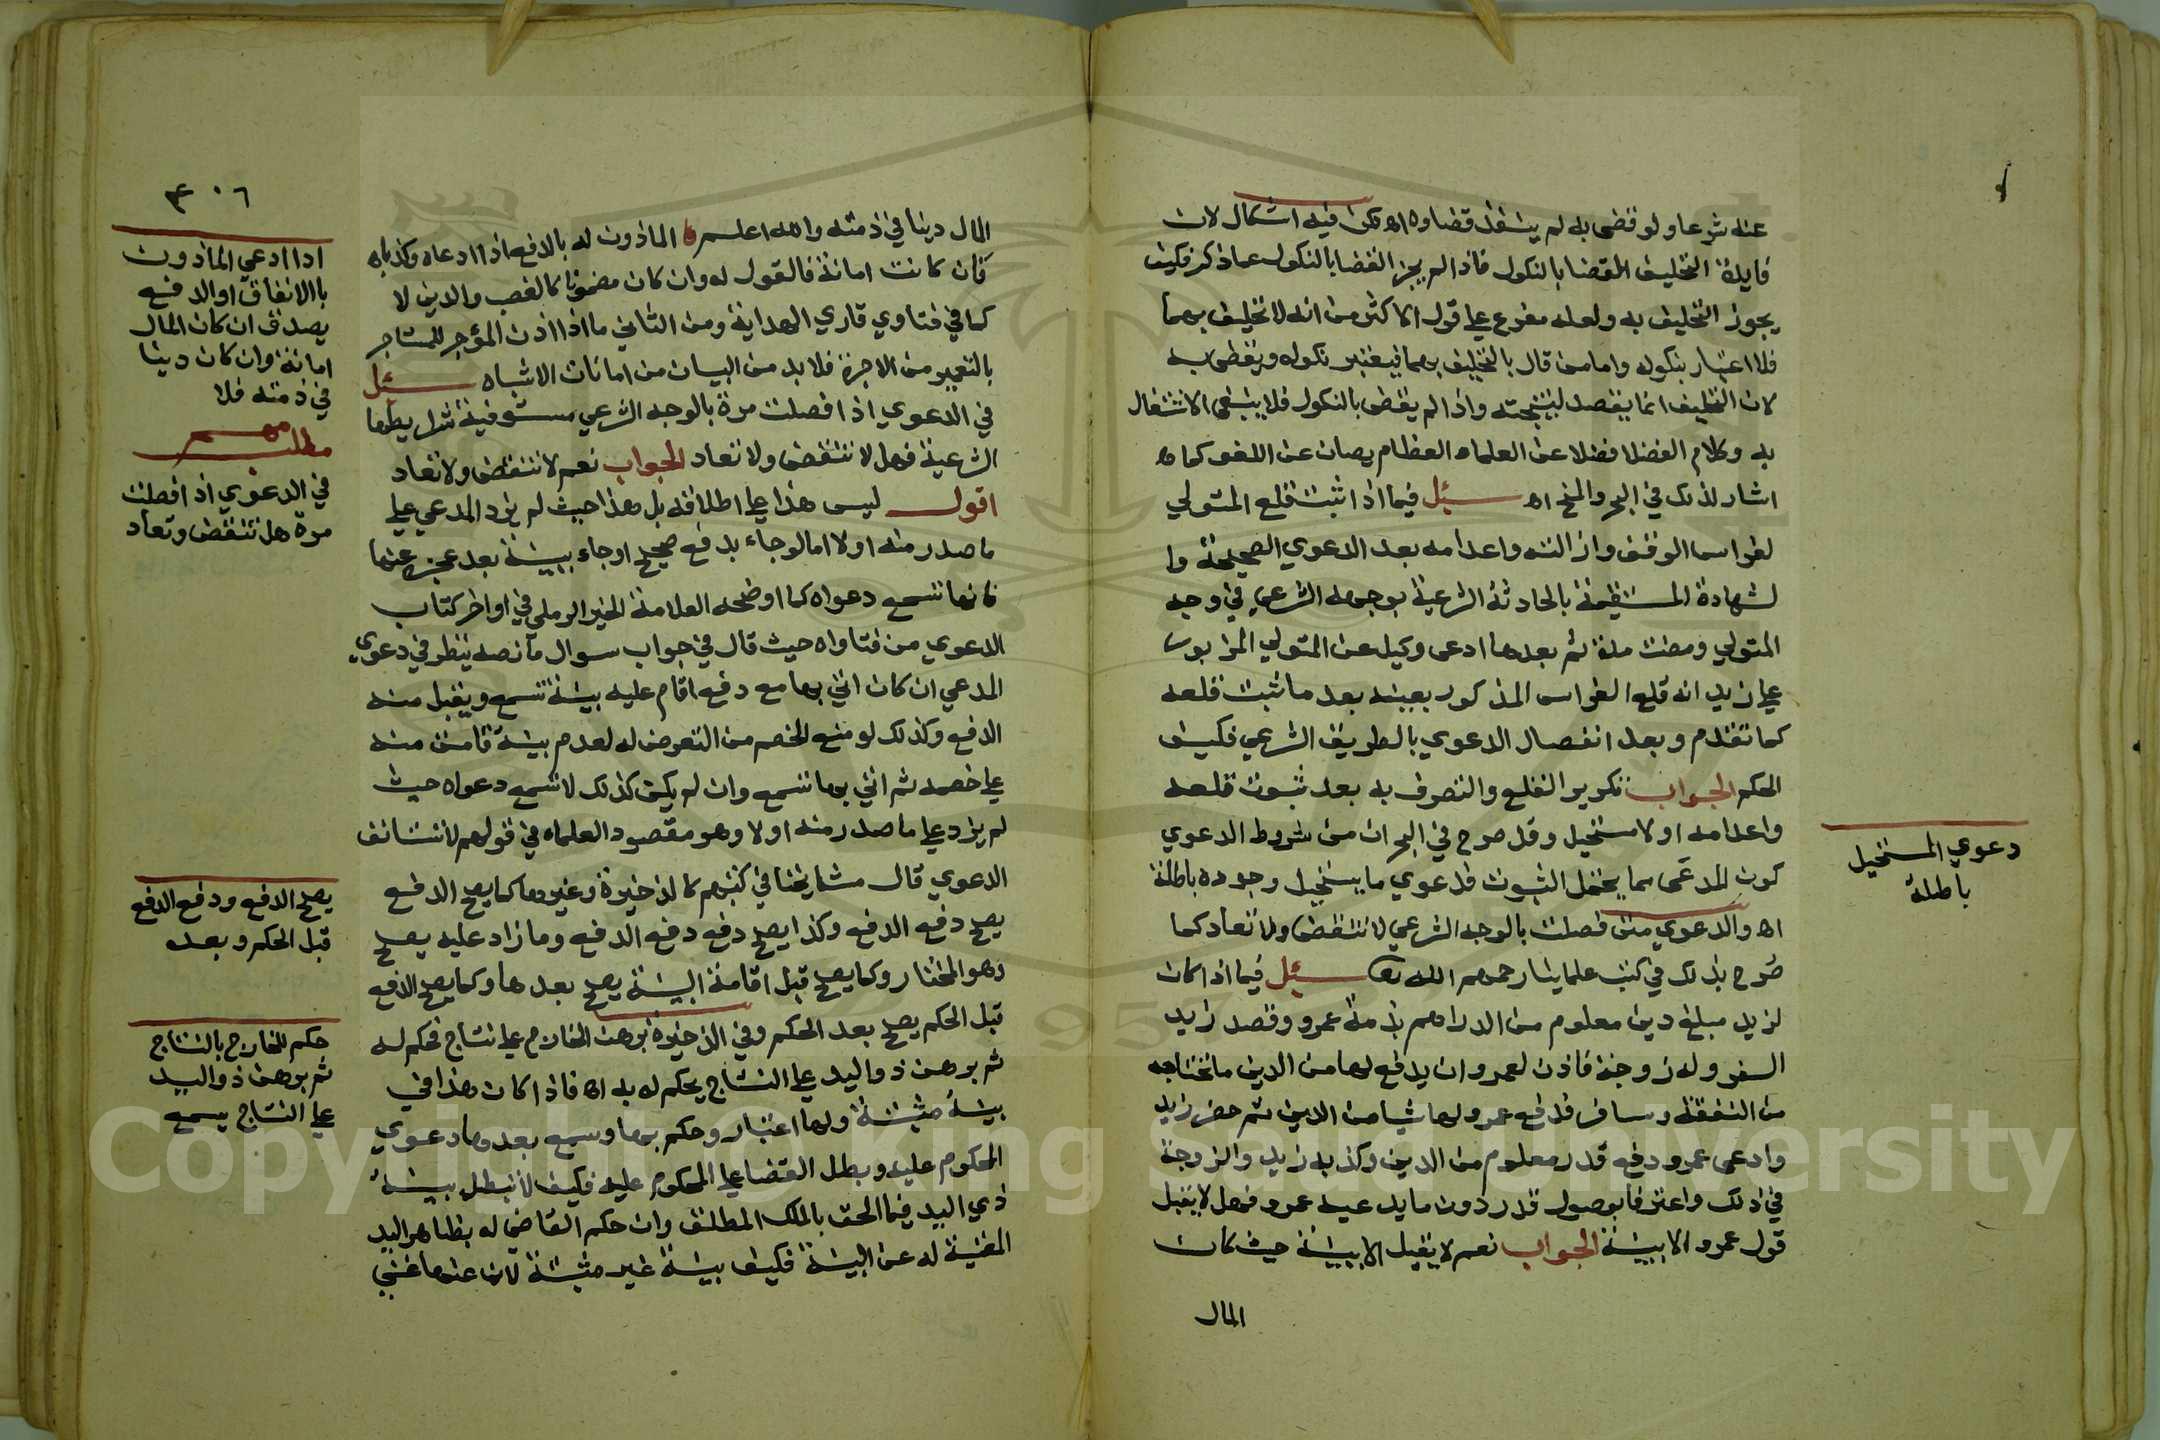 عنه شرعا ولو قضى به لم ينفذ قضاوه اه لكن فيه اشكال لان
فايدة التحليف القضا بالنكول فاذا لم يجز القضا بالنكول عما ذكر فكيف
يجوز التحليف به ولعله مفرع على قول الاكثر من انه لا تحليف بهما
فلا اعتبار بنكوله واما من قال بالتحليف بهما فيعتبر نكوله ويقضى به
لان التحليف انما يقصد لنتيجته واذا لم يقض بالنكول فلا ينبغي الاشتغال
به وكلام الفضلا فضلا عن العلماء العظام يصان عن اللغو كما
اشار لذلك في البحر والمنح اه سئل فيما اذا ثبت قلع المتولي
لغراس الوقف وازالته واعدامه بعد الدعوي الصحيحة وا
لشهادة المستقيمة بالحادثة الشرعية بوجهه الشرعي في وجه
المتولي ومضت مدة ثم بعدها ادعى وكيل عن المتولي المزبور
علي زيد انه قلع الغراس المذكور بعينه بعد ما ثبت قلعه
كما تقدم وبعد انفصال الدعوي بالطريق الشرعي فكيف
الحكم الجواب تكرير القلع والتصرف به بعد ثبوت قلعه
واعدامه اولا مستحيل وقد صرح في البحر ان من شروط الدعوي
كون المدعى مما يحتمل الثبوت فدعوي ما يستحيل وجوده باطلة
اه والدعوي متى فصلت بالوجه الشرعي لا تنتقض ولا تعاد كما
صرح بذلك في كتب علماينا رحمهم الله تعا سئل فيما اذا كان
لزيد مبلغ دين معلوم من الدراهم بذمة عمرو وقصد زيد
السفر وله زوجة فاذن لعمرو ان يدفع لها من الدين ما تحتاجه
من النفقة وسافر فدفع عمرو لها شيا من الدين ثم حضر زيد
وادعى عمرو دفع قدر معلوم من الدين وكذبه زيد والزوجة
في ذلك واعترفا بوصول قدر دون ما يدعيه عمرو فهل لا يقبل
قول عمرو الا ببينة الجواب نعم لا يقبل الا ببينة حيث كان
المال
دعوي المستحيل
باطلة
٤٠٦
المال دينا في ذمته والله اعلم المأذون له بالدفع اذا ادعاه وكذباه
فان كانت امانة فالقول له وان كان مضمونا كالغصب والدين لا
كما في فتاوي قاري الهداية ومن الثاني ما اذا اذن المؤجر للمستاجر
بالتعمير من الاجرة فلا بد من البيان من امانات الاشباه سئل
في الدعوي اذا فصلت مرة بالوجه الشرعي مستوفية شرايطها
الشرعية فهل لا تنتقض ولا تعاد الجواب نعم لا تنتقض ولا تعاد
اقول ليس هذا علي اطلاقه بل هذا حيث لم يزد المدعي علي
ما صدر منه اولا اما لو جاء بدفع صحيح او جاء ببينة بعد عجزه عنها
فانها تسمع دعواه كما اوضحه العلامة الخير الرملي في اواخر كتاب
الدعوي من فتاواه حيث قال في جواب سوال ما نصه ينظر في دعوي
المدعي ان كان اتي بها مع دفع اقام عليه بينة تسمع ويقبل منه
الدفع وكذلك لو منع الخصم من التعرض له لعدم بينة قامت منه
علي خصمه ثم اتي بها تسمع وان لم يكن كذلك لا تسمع دعواه حيث
لم يزد علي ما صدر منه اولا وهو مقصود العلماء في قولهم لا تستانف
الدعوي قال مشايخنا في كتبهم كالذخيرة وغيرها كما يصح الدفع
يصح دفع الدفع وكذا يصح دفع دفع الدفع وما زاد عليه يصح
وهو المختار وكما يصح قبل اقامة البينة يصح بعدها وكما يصح الدفع
قبل الحكم يصح بعد الحكم وفي الذخيرة برهن الخارج علي نتاج فحكم له
ثم برهن ذو اليد علي النتاج يحكم له به اه فاذا كان هذا في
بينة مثبتة ولها اعتبار وحكم بها وسمع بعدها دعوي
المحكوم عليه وبطل القضا علي المحكوم عليه فكيف لا تبطل بينة
ذي اليد فيما الحق بالملك المطلق وان حكم القاضي له بظاهر اليد
المغنية له عن البينة فكيف ببينة غير مثبتة لان عنها غني
اذا ادعي الماذون
بالانفاق او الدفع
يصدق ان كان المال
امانة وان كان دينا
في ذمته فلا
مطلب مهم
في الدعوي اذا فصلت
مرة هل تنتقض وتعاد
يصح الدفع ودفع الدفع
قبل الحكم وبعده
حكم للخارج بالنتاج
ثم برهن ذو اليد
علي النتاج يسمع
Copyright © King Saud University